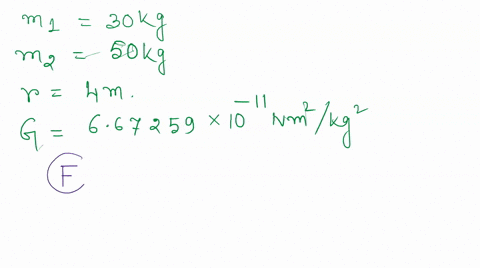 m₁ = 30kg
m₂ = 50kg
r = 4m.
G = 6.67259 × 10⁻¹¹ Nm²/kg²
F